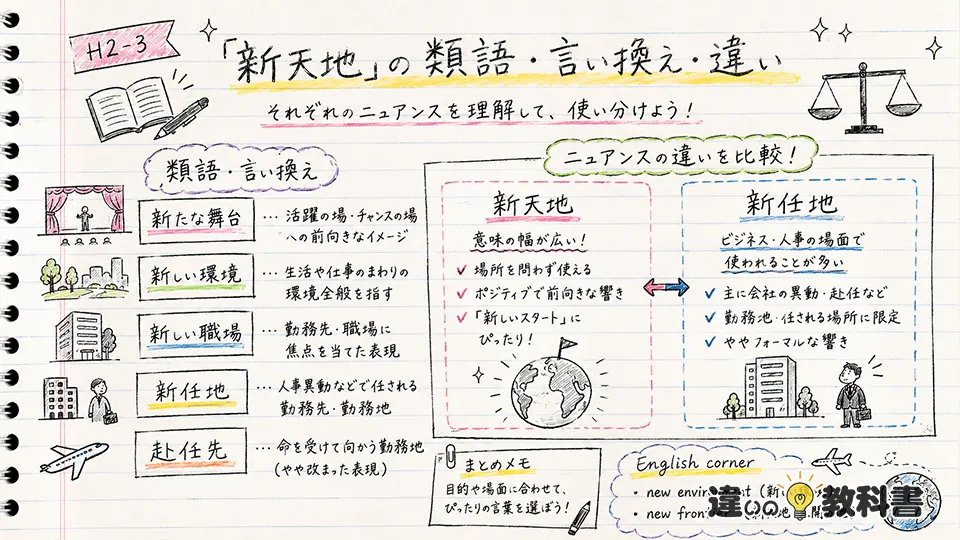 H2-3
「新天地」の 類語・言い換え・違い
それぞれのニュアンスを理解して、使い分けよう!
類語・言い換え
新たな舞台
… 活躍の場・チャンスの場
への前向きなイメージ
新しい環境
… 生活や仕事のまわりの
環境全般を指す
新しい職場
… 勤務先・職場に
焦点を当てた表現
新任地
… 人事異動などで任される
勤務先・勤務地
赴任先
… 命を受けて向かう勤務地
(やや改まった表現)
ニュアンスの違いを比較!
新天地
意味の幅が広い!
✓ 場所を問わず使える
✓ ポジティブで前向きな響き
✓ 「新しいスタート」に
ぴったり!
新任地
ビジネス・人事の場面で
使われることが多い
✓ 主に会社の異動・赴任など
✓ 勤務地・任される場所に限定
✓ ややフォーマルな響き
まとめメモ
目的や場面に合わせて、
ぴったりの言葉を選ぼう!
English corner
• new
• new
違いの教科書